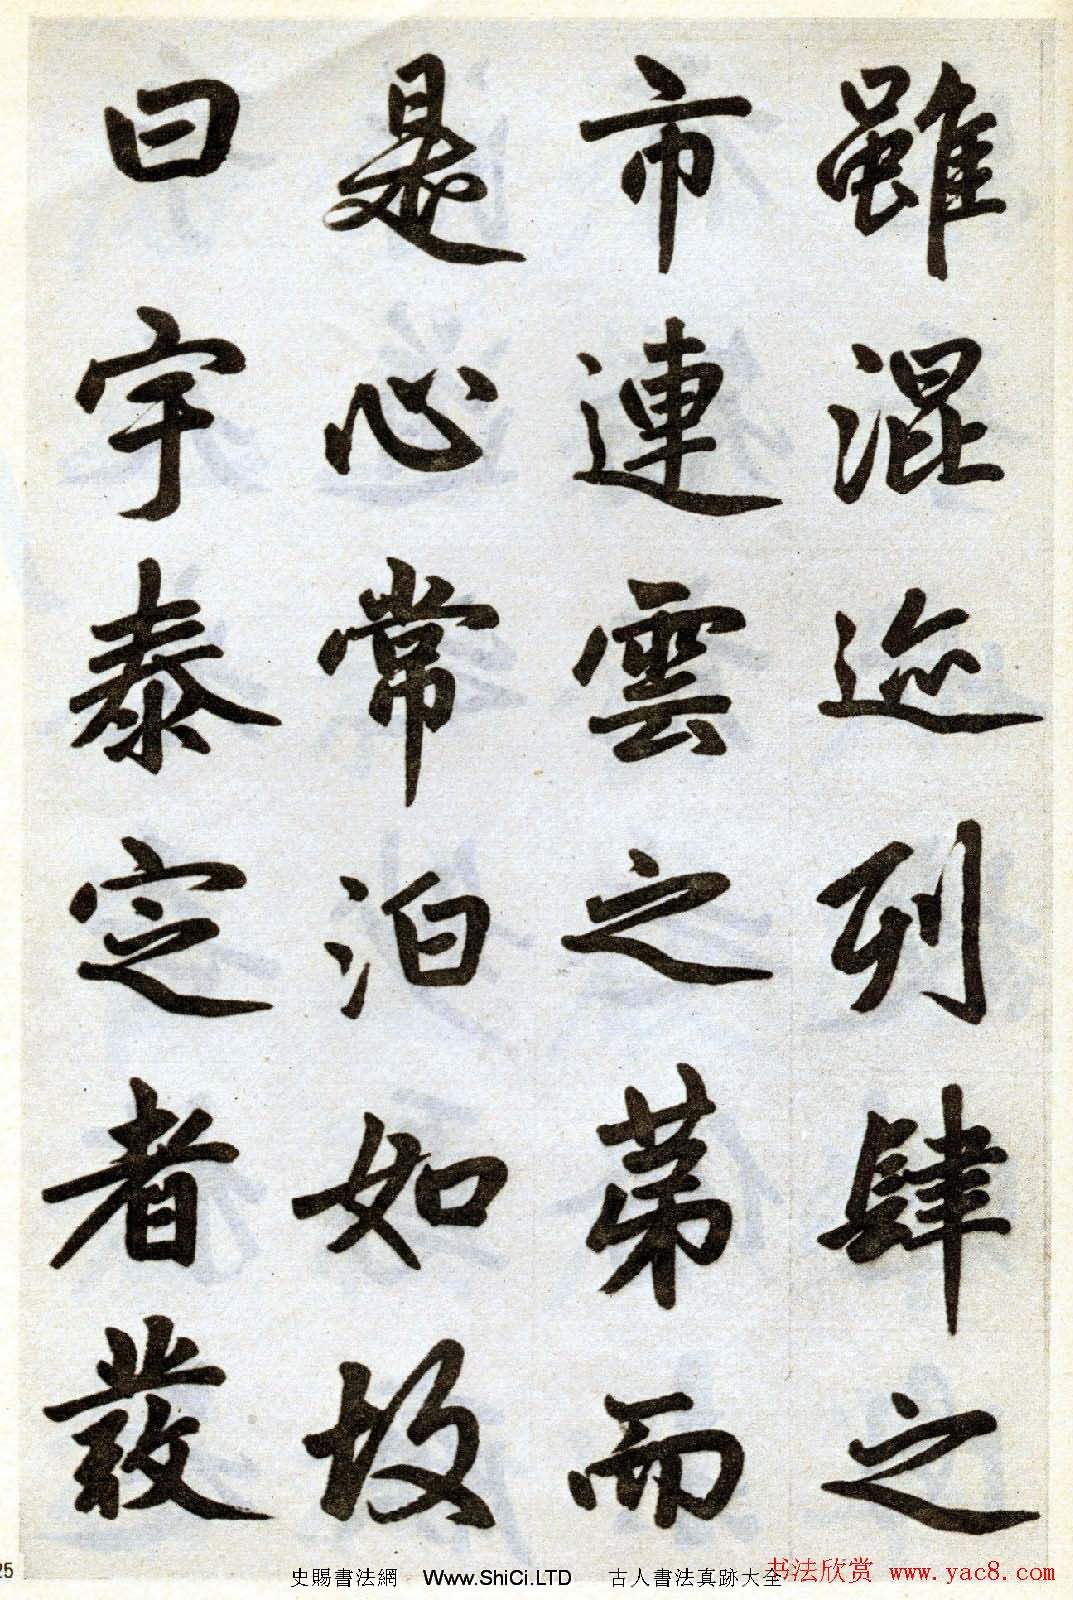 雖混迹列肆之
市連雲之第而
是心常泊如故
曰宇泰定者發
25
史賜書法網 Www.ShiCi.LTD 古人書法真跡大全
书法欣赏 www.yac8.com